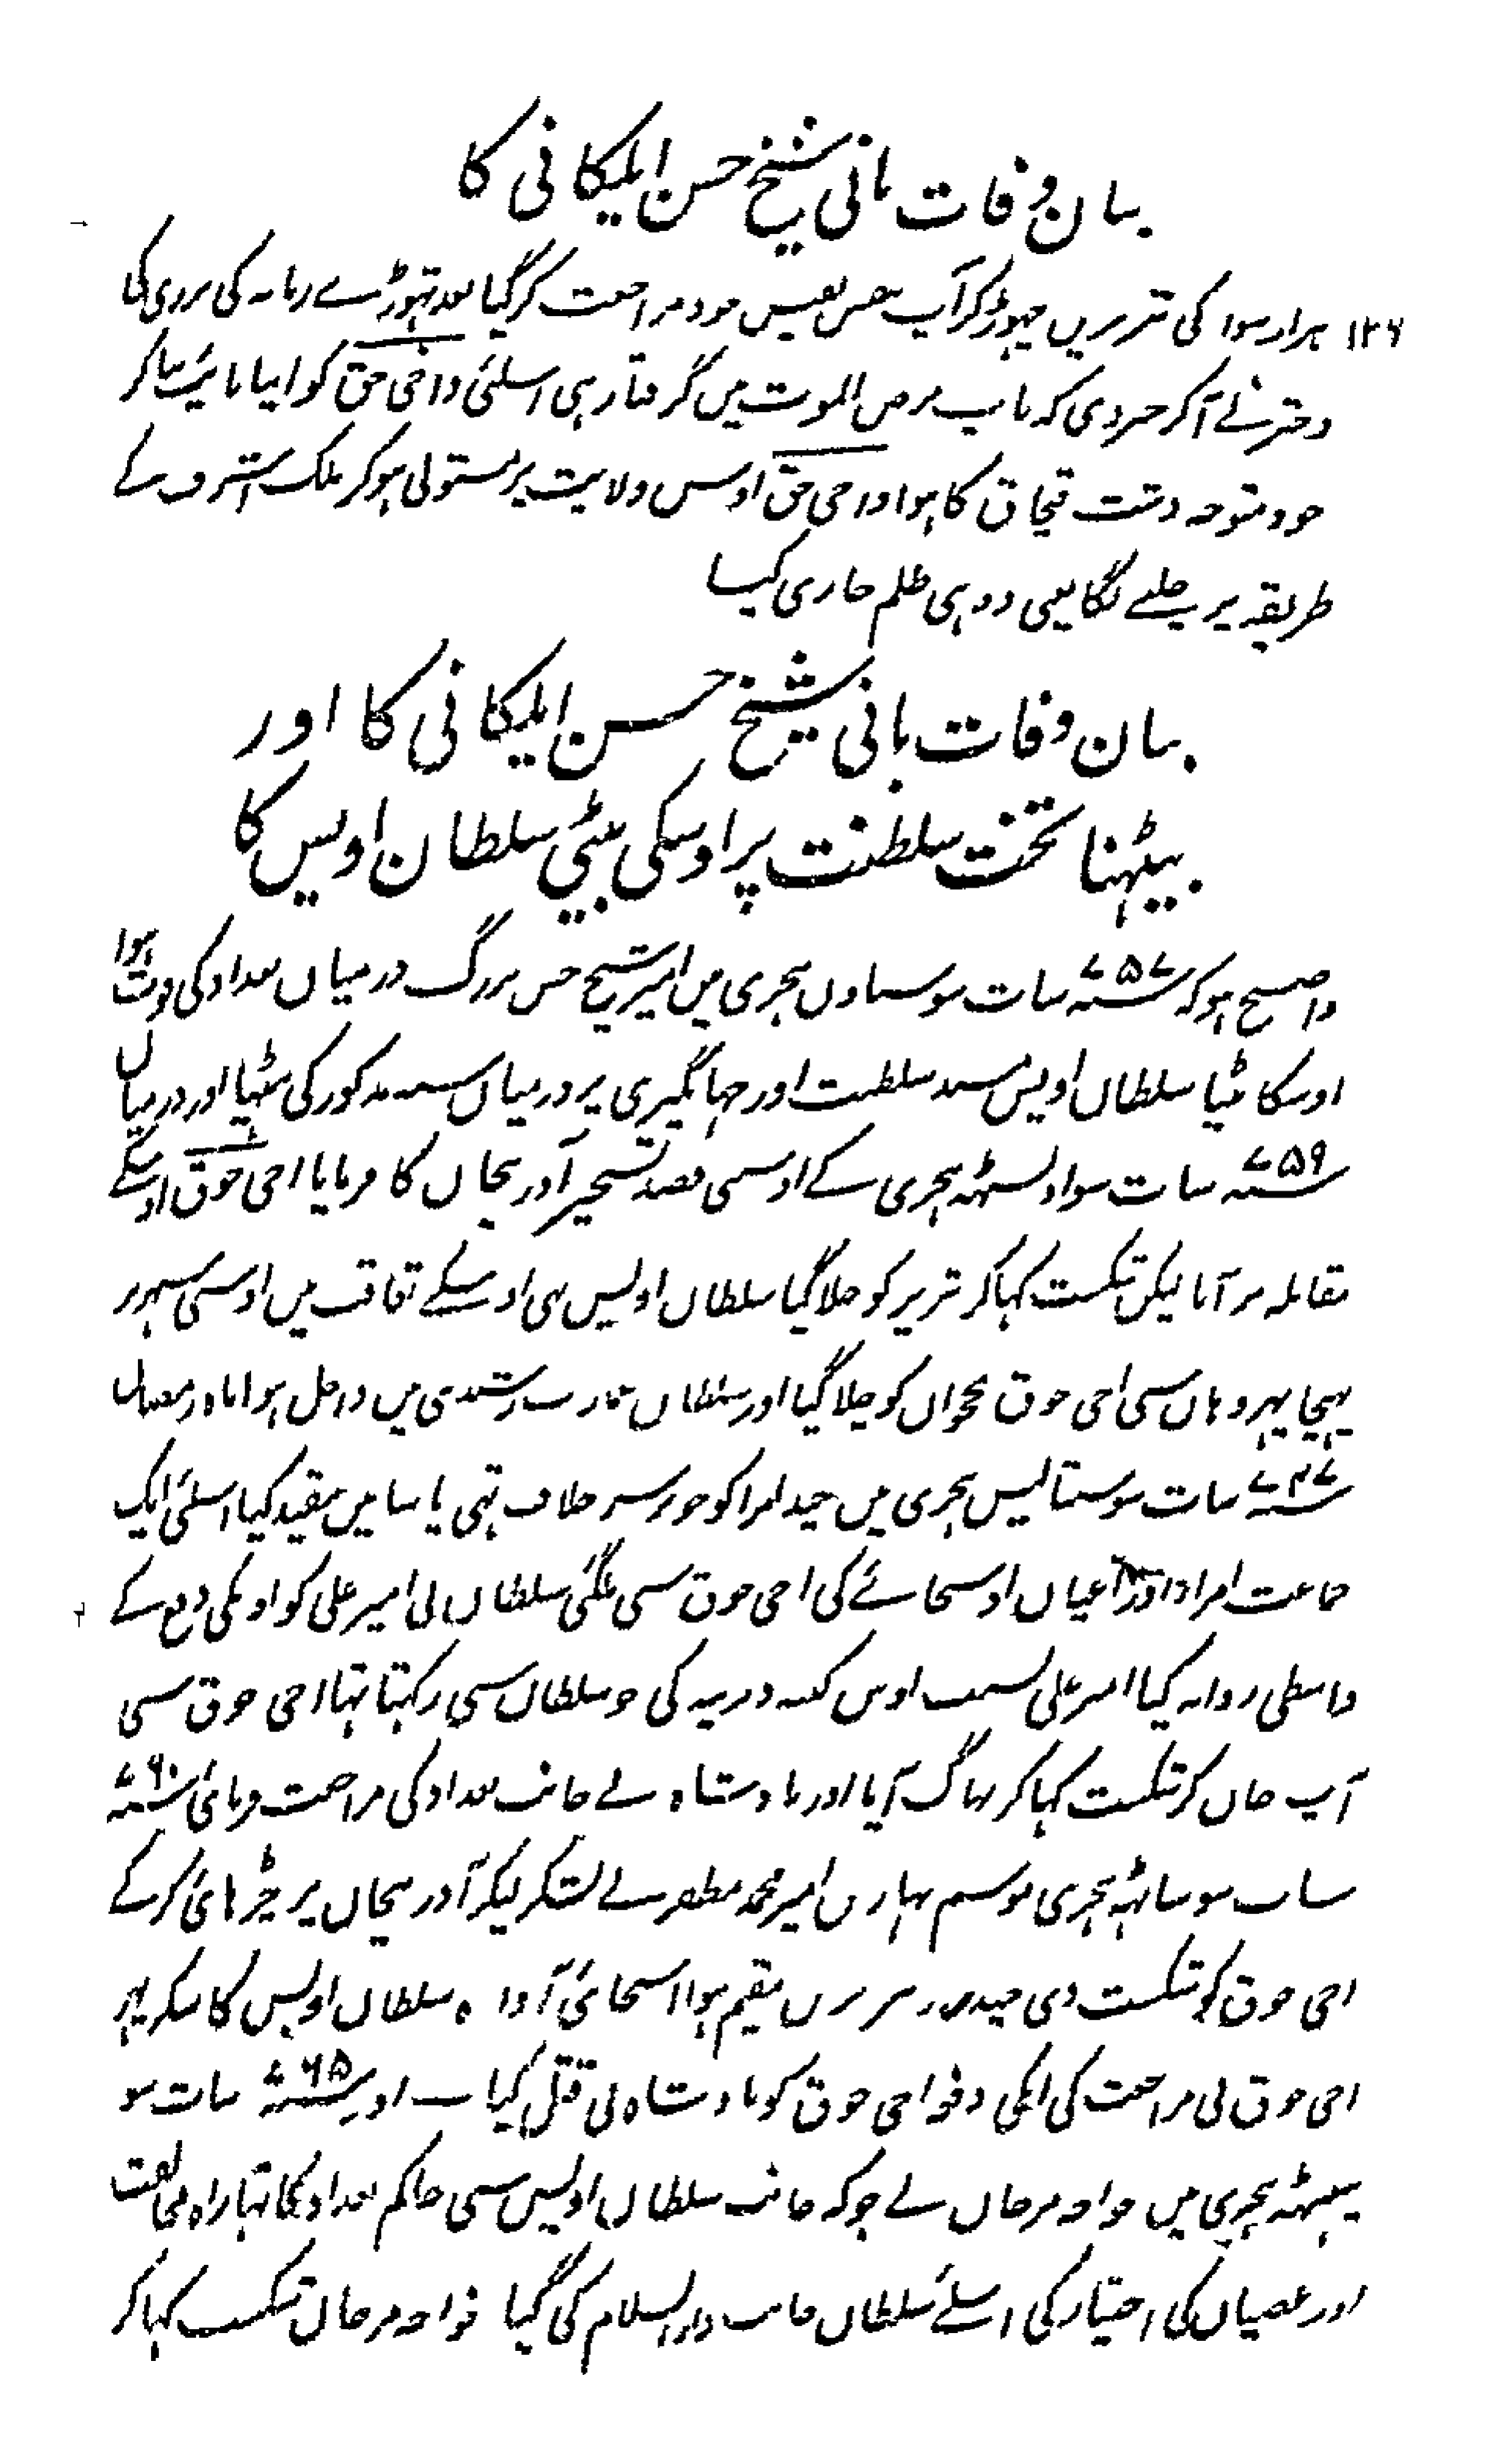 بیان وفات پانی شیخ حسن ایلیکانی کا
۱۲۶ ہزار سوار کی تبریز میں چہوڑ کر آپ بنفس نفیس خود مراجعت کر گیا بعد تہوڑے زمانہ کی بردی کی
دختر نے آکر خبر دی کہ باپ مرض الموت میں گرفتار ہی اسلئی واخی جق کو اپنا نائب بنا کر
خود متوجہ دشت قبچاق کا ہوا اور اخی جق اوس ولایت پر مستولی ہو کر ملک اشرف کے
طریقہ پر چلنے لگا یعنی وہی ظلم جاری کیا
بیان وفات پانی شیخ حسن ایلیکانی کا اور
بیٹہنا تخت سلطنت پر اوسکی بیٹی سلطان اویس کا
واضح ہو کہ ۷۵۷ سنہ سات سو ستاون ہجری میں امیر شیخ حسن بزرگ درمیان بغداد کی فوت ہوا
اوسکا بیٹا سلطان اویس مسند سلطنت اور جہانگیری پر درمیان سنہ مذکور کی بیٹہا اور درمیان
۷۵۹ سنہ سات سو اونسٹہہ ہجری کے اوسی قصد تسخیر آذربیجان کا فرمایا اخی جوق اوسکے
مقابلہ پر آیا لیکن شکست کہا کر تبریز کو چلا گیا سلطان اویس بہی اوسکے تعاقب میں اوسی شہر
پہنچا پہر وہاں سی اخی جوق نخجوان کو چلا گیا اور سلطان عمارت رشیدی میں داخل ہوا ماہ رمضان
۷۴۷ سنہ سات سو سنتالیس ہجری میں چند امرا کو جو برسر خلاف تہی یاسا میں مقید کیا اسلئی ایک
جماعت امرا اور اعیان اوسجائے کی اخی جوق سی ملگئی سلطان نی امیر علی کو اونکی دفع کے
واسطی روانہ کیا امیر علی بسبب اوس کینہ دیرینہ کی جو سلطان سی رکہتا تہا اخی جوق سی
آپ جان کر شکست کہا کر بہاگ آیا اور بادشاہ نے جانب بغداد کی مراجعت فرمائی ۷۶۰ سنہ
سات سو ساٹہہ ہجری موسم بہار میں امیر محمد مظفر نے لشکر لیکر آذربیجان پر چڑہائی کرکے
اخی جوق کو شکست دی چند روز تبریز میں مقیم ہوا اسجائی آوازہ سلطان اویس کا سنکر پہر
اخی جوق نی مراجعت کی ابکی دفعہ اخی جوق کو بادشاہ نی قتل کیا اور ۷۶۵ سنہ سات سو
پینسٹہہ ہجری میں خواجہ مرجان نے جو کہ جانب سلطان اویس سی حاکم بغداد کا تہا راہ مخالفت
اور عصیان کی اختیار کی اسلئے سلطان جانب دارالسلام کی گیا خواجہ مرجان شکست کہا کر